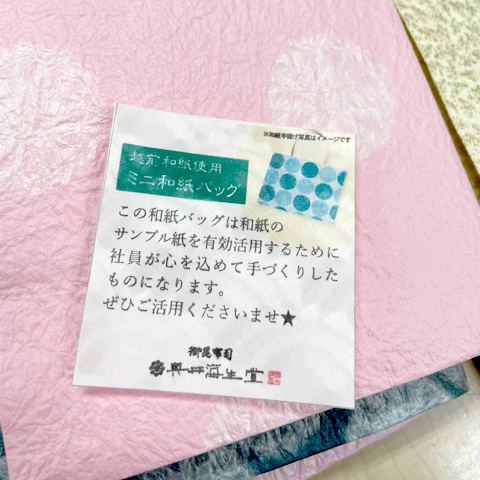 ※和紙手提げ写真はイメージです
越前和紙使用
ミニ和紙バッグ
この和紙バッグは和紙の
サンプル紙を有効活用するために
社員が心を込めて手づくりした
ものになります。
ぜひご活用くださいませ★
御昆布司
奥井海生堂